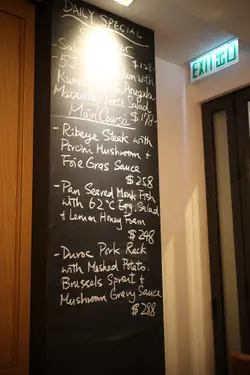 DAILY SPECIAL
$128
with
Arugula
Cheese Salad
$178
Main Course
- Ribeye Steak with
Porcini Mushroom +
Foie Gras Sauce
$258
- Pan Seared Monk Fish
with 62°C Egg, Salad
+ Lemon Honey Foam
$248
- Duroc Pork Rack
with Mashed Potato,
Brussels Sprout +
Mushroom Gravy Sauce
$288
EXIT 出口